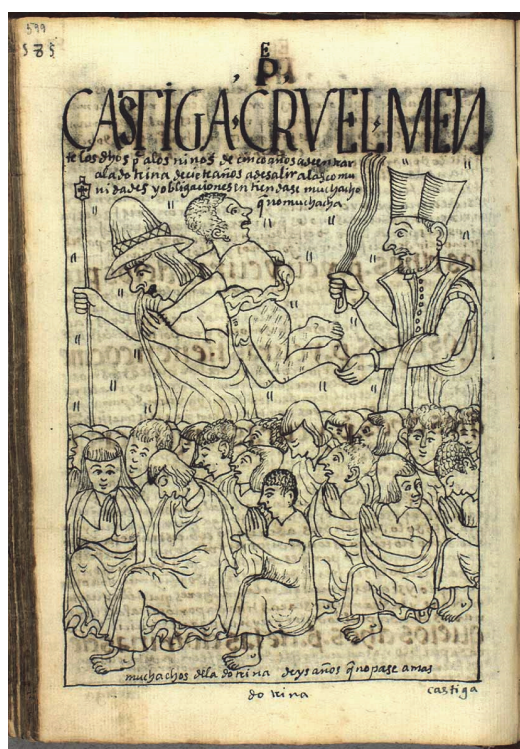 599
585
E
P.
CASTIGA, CRVEL, MEN
te los dhos pes a los niños de cinco años a de entrar
a la dotrina de ciete años a de salir a las comu
nidades y obligaciones entiendase muchacho
q no muchacha
muchachos de la dotrina de ys años q no pase a mas
dotrina
castiga